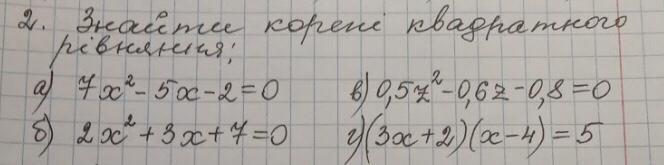 2. Знайти корені квадратного
рівняння;
а) 7x² - 5x - 2 = 0
в) 0,5z² - 0,6z - 0,8 = 0
б) 2x² + 3x + 7 = 0
г) (3x + 2)(x - 4) = 5